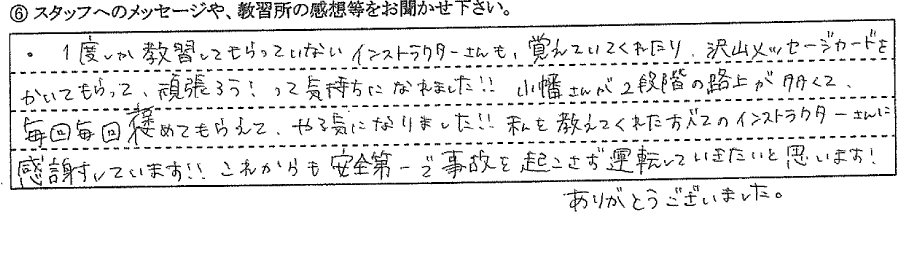 ⑥ スタッフへのメッセージや、教習所の感想等をお聞かせ下さい。
・1度しか教習してもらっていないインストラクターさんも、覚えていてくれたり、沢山メッセージカードを
かいてもらって、頑張ろう！って気持ちになれました!! 小幡さんが2段階の路上が多くて、
毎回毎回褒めてもらえて、やる気になりました!! 私を教えてくれた全てのインストラクターさんに
感謝しています!! これからも安全第一で事故を起こさず運転していきたいと思います!
ありがとうございました。